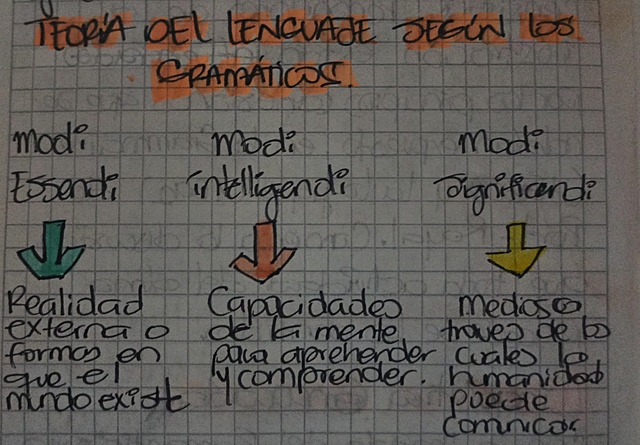 TEORÍA DEL LENGUAJE SEGÚN LOS
GRAMÁTICOS.
Modi
Essendi
Realidad
externa o
formas en
que el
mundo existe
Modi
intelligendi
Capacidades
de la mente
para aprehender
y comprender.
Modi
significandi
Medios a
traves de los
cuales la
humanidad
puede
comunicar